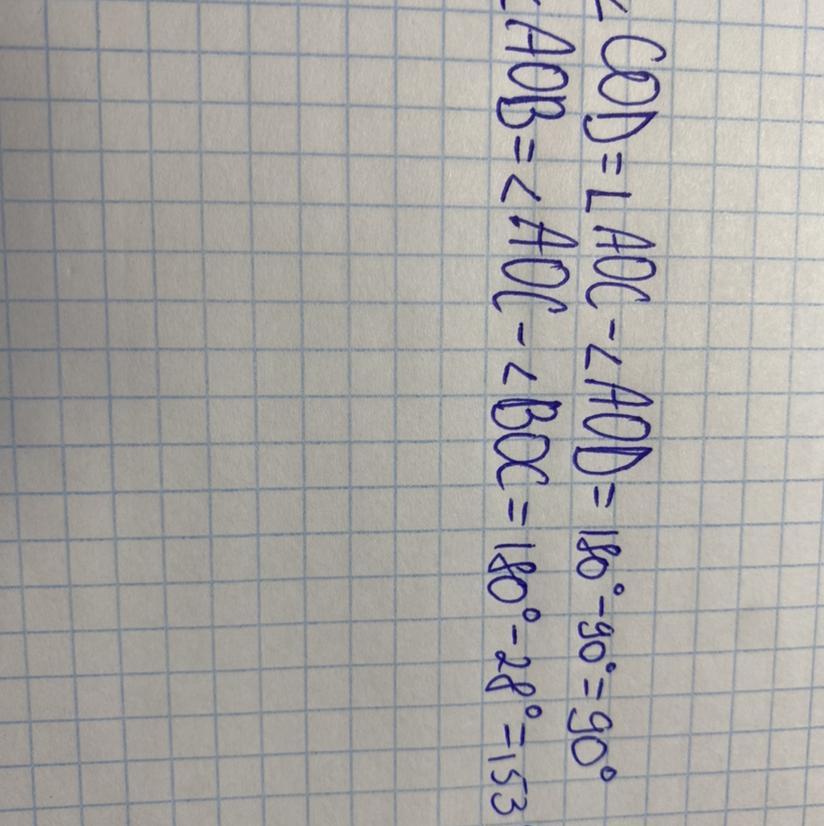 ∠COD=∠AOC-∠AOD=180°-90°=90°
∠AOB=∠AOC-∠BOC=180°-28°=153